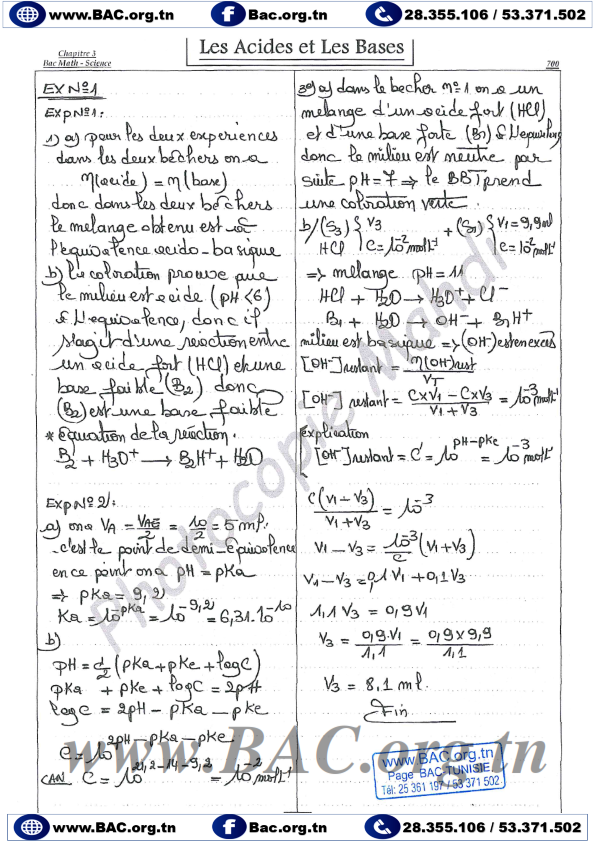 www.BAC.org.tn Bac.org.tn 28.355.106 / 53.371.502
Chapitre 3
Bac Math - Science
Les Acides et Les Bases
700
EX N°1
Exp N°1:
1) a) pour les deux experiences
dans les deux béchers on a
n(acide) = n(base)
donc dans les deux béchers
le melange obtenu est à
l'equivalence acido-basique
b) la coloration prouve que
le milieu est acide (pH < 6)
à l'equivalence, donc il
s'agit d'une reaction entre
un acide fort (HCl) et une
base faible (B2) donc
(B2) est une base faible
* équation de la réaction.
B2 + H3O+ → B2H+ + H2O
Exp N°2/:
a) on a VA = VAE/2 = 10/2 = 5 ml.
c'est le point de demi-équivalence
en ce point on a pH = pKa
⇒ pKa = 9,2
Ka = 10^-pKa = 10^-9,2 = 6,31.10^-10
b)
pH = 1/2 (pKa + pKe + logC)
pKa + pKe + logC = 2pH
logC = 2pH - pKa - pKe
C = 10^2pH - pKa - pKe
C = 10 = 10^-2 mol.l^-1
3°) a) dans le becher n°1 on a un
melange d'un acide fort (HCl)
et d'une base forte (B1) à l'equivalence
donc le milieu est neutre par
suite pH = 7 ⇒ le BBT prend
une coloration verte.
b/ (S3) { V3 + (S1) { V1 = 9,9 ml
HCl C = 10^-2 mol.l^-1 C = 10^-2 mol.l^-1
⇒ melange pH = 11
HCl + H2O → H3O+ + Cl-
B1 + H2O → OH- + B1H+
milieu est basique ⇒ (OH-) est en excés
[OH-] restant = n(OH-)rest / VT
[OH-] restant = CxV1 - CxV3 / V1 + V3 = 10^-3 mol.l^-1
explication
[OH-] restant = C' = 10^pH-pKe = 10^-3 mol.l^-1
C(V1 - V3) / V1 + V3 = 10^-3
V1 - V3 = 10^-3/C (V1 + V3)
V1 - V3 = 0,1 V1 + 0,1 V3
1,1 V3 = 0,9 V1
V3 = 0,9.V1 / 1,1 = 0,9 x 9,9 / 1,1
V3 = 8,1 ml.
Fin
Photocopie Mahdi
www.BAC.org.tn
www.BAC.org.tn
Page BAC TUNISIE
Tél: 25 361 197 / 53 371 502
www.BAC.org.tn Bac.org.tn 28.355.106 / 53.371.502